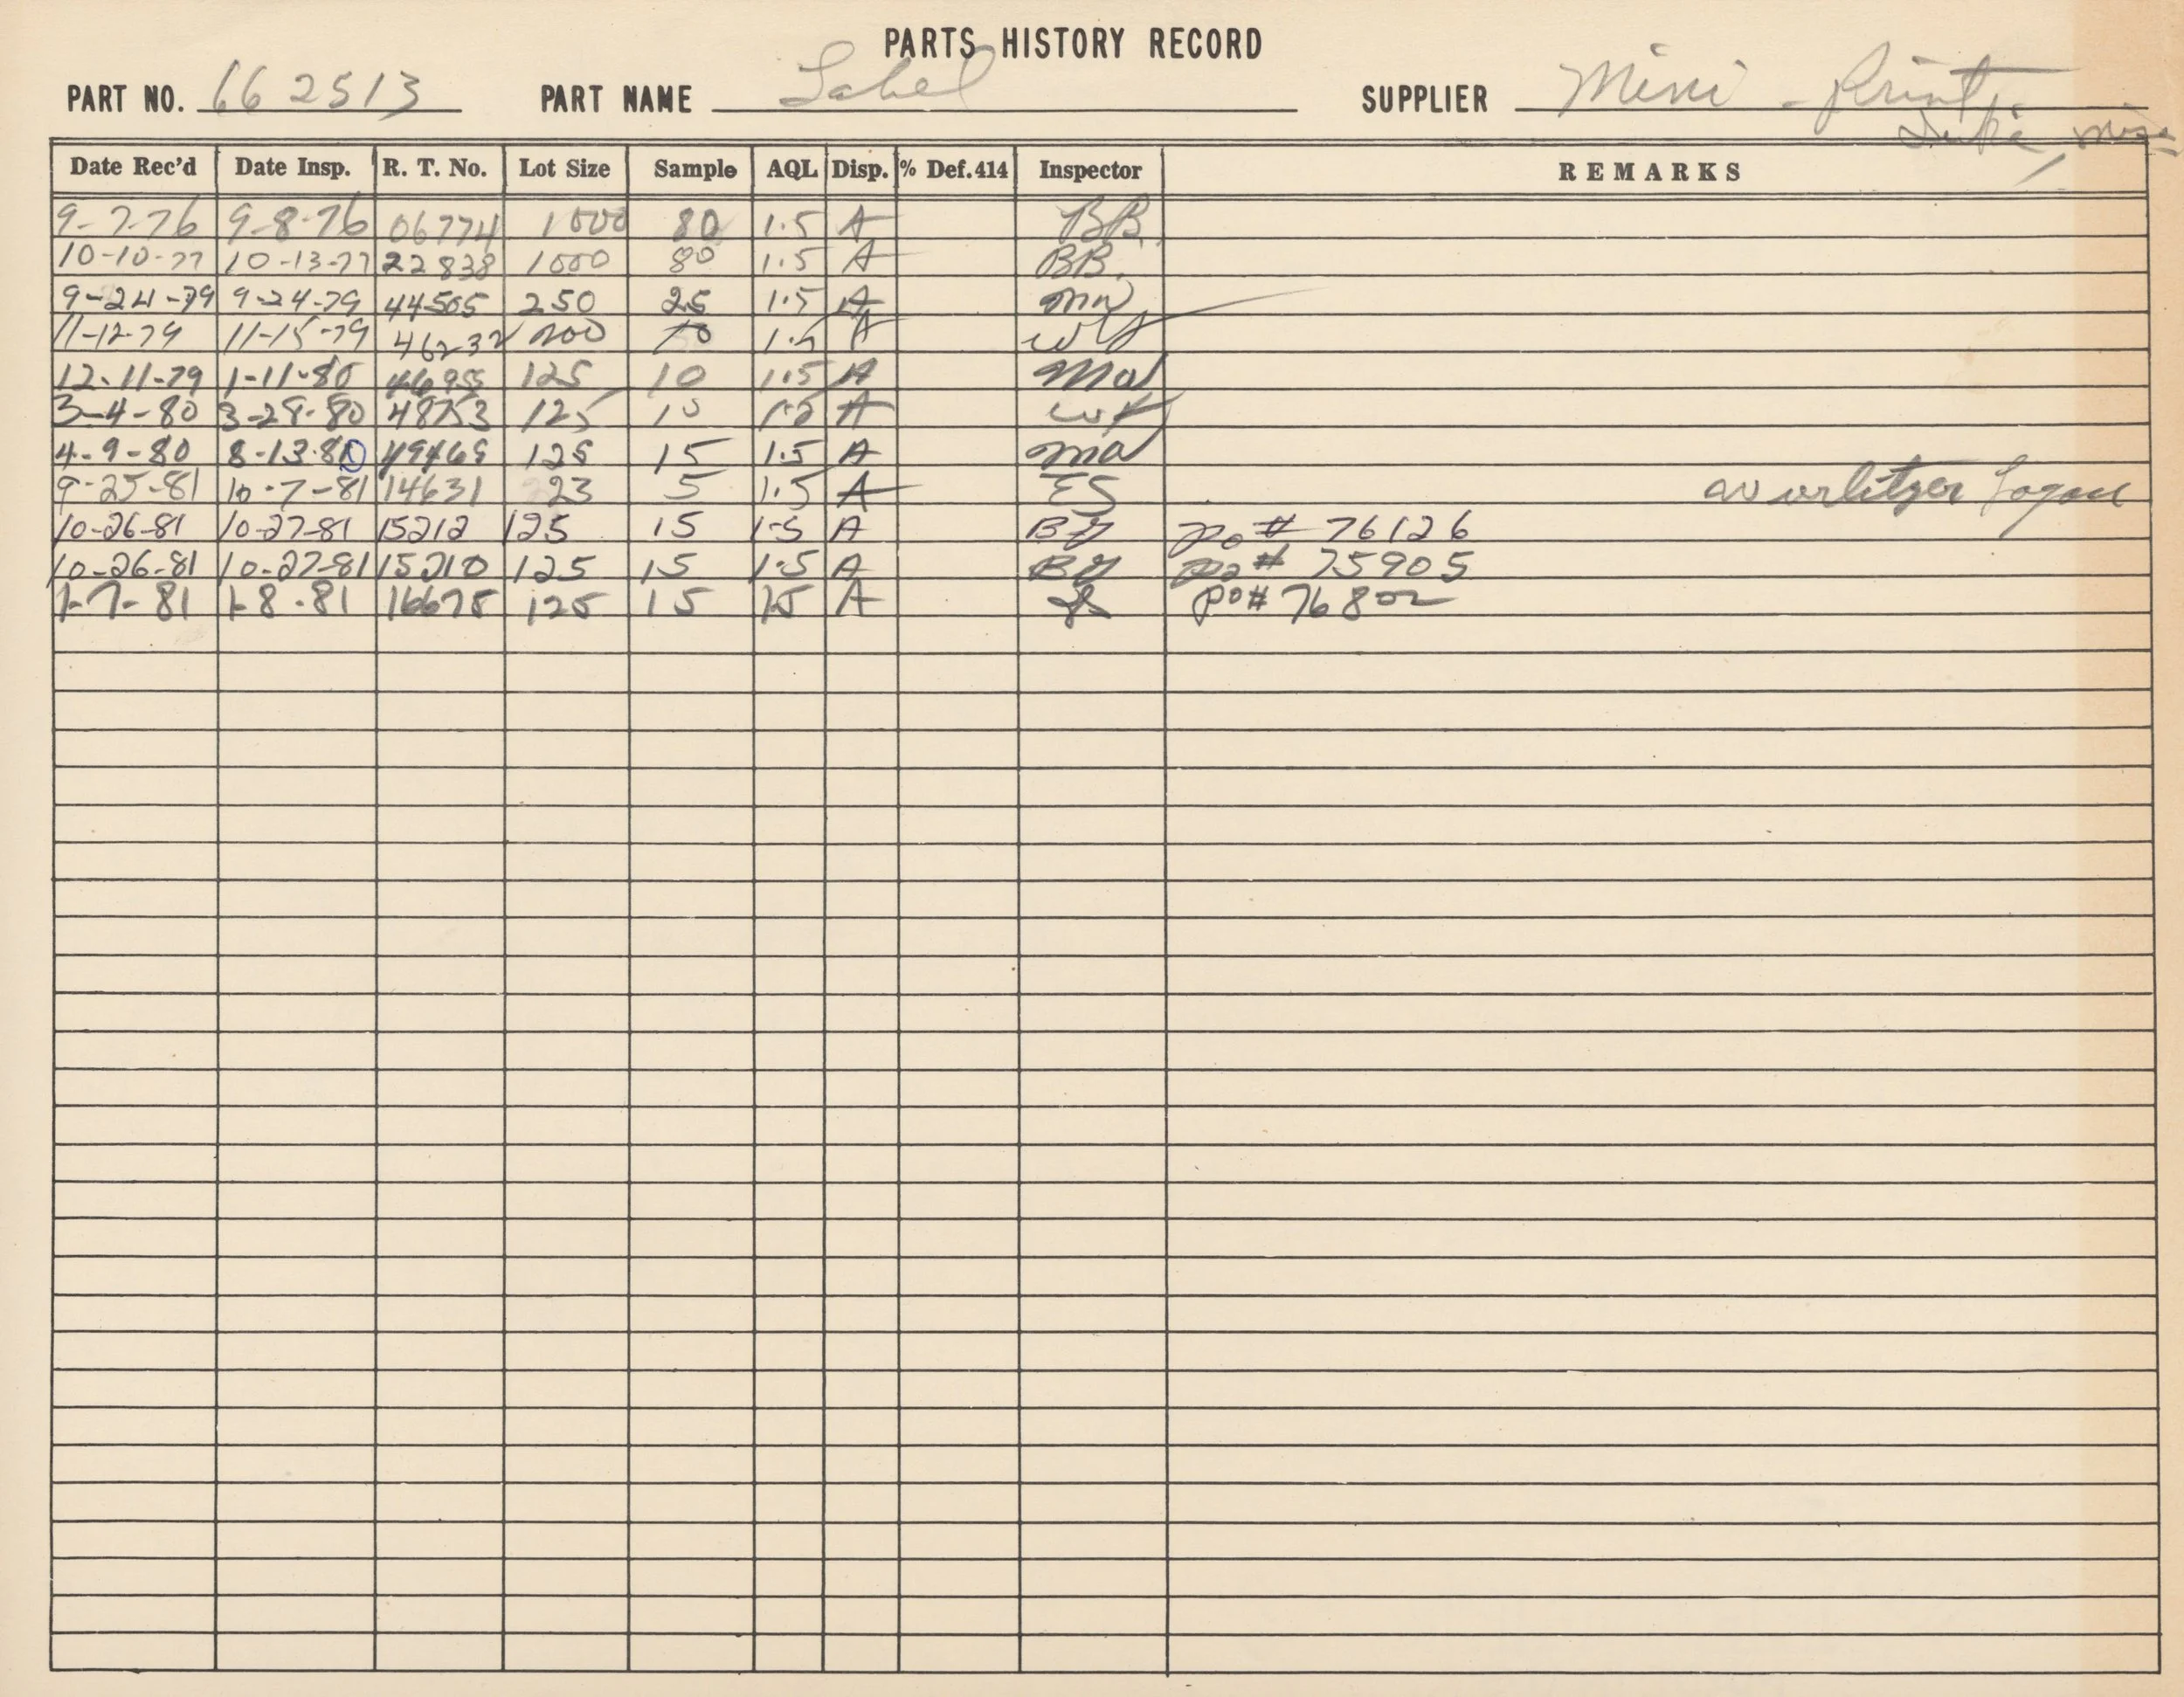 PARTS HISTORY RECORD
PART NO. 662513 PART NAME Label SUPPLIER Mini - Print
Date Rec'd Date Insp. R. T. No. Lot Size Sample AQL Disp. % Def. 414 Inspector REMARKS
9-7-76 9-8-76 06774 1000 80 1.5 A BB.
10-10-77 10-13-77 22838 1000 80 1.5 A BB.
9-24-79 9-24-79 44505 250 25 1.5 A
11-12-79 11-15-79 46232 200 10 1.5 A
12-11-79 1-11-80 46955 125 10 1.5 A
3-4-80 3-28-80 48753 125 10 A
4-9-80 8-13-80 49469 125 15 1.5 A
9-25-81 10-7-81 14631 23 5 1.5 A ES wurlitzer Logan
10-26-81 10-27-81 15212 125 15 1.5 A po # 76126
10-26-81 10-27-81 15210 125 15 1.5 A po # 75905
1-7-81 1-8-81 16675 125 15 15 A po # 76802